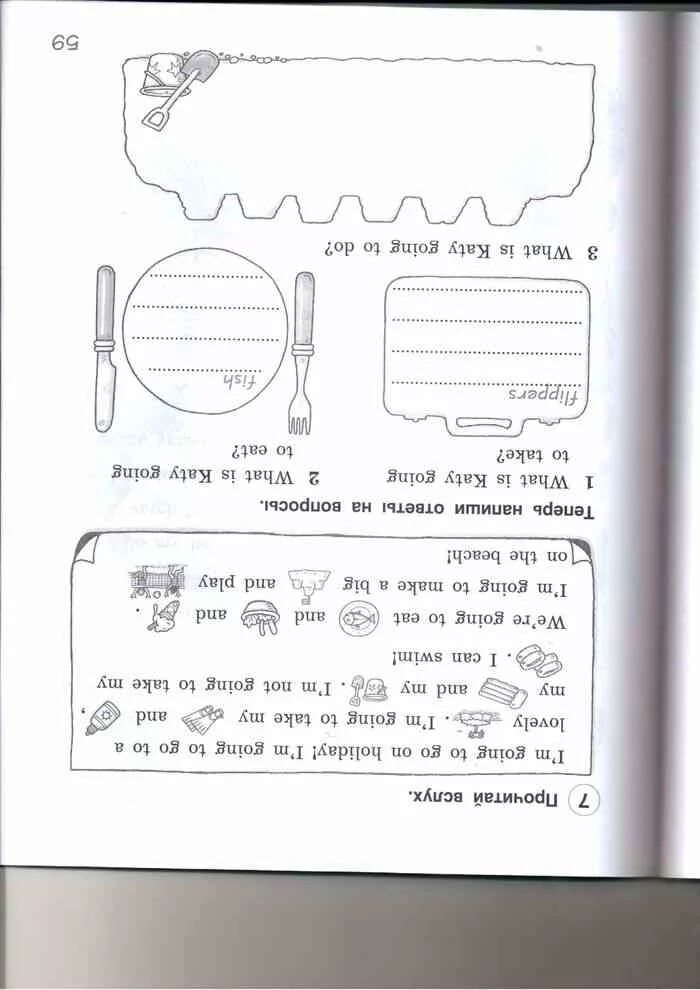 7 Прочитай вслух.
I'm going to go on holiday! I'm going to go to a
lovely . I'm going to take my and ,
my and my . I'm not going to take my
. I can swim!
We're going to eat and and .
I'm going to make a big and play
on the beach!
Теперь напиши ответы на вопросы.
1 What is Katy going
to take?
flippers
2 What is Katy going
to eat?
fish
3 What is Katy going to do?
59